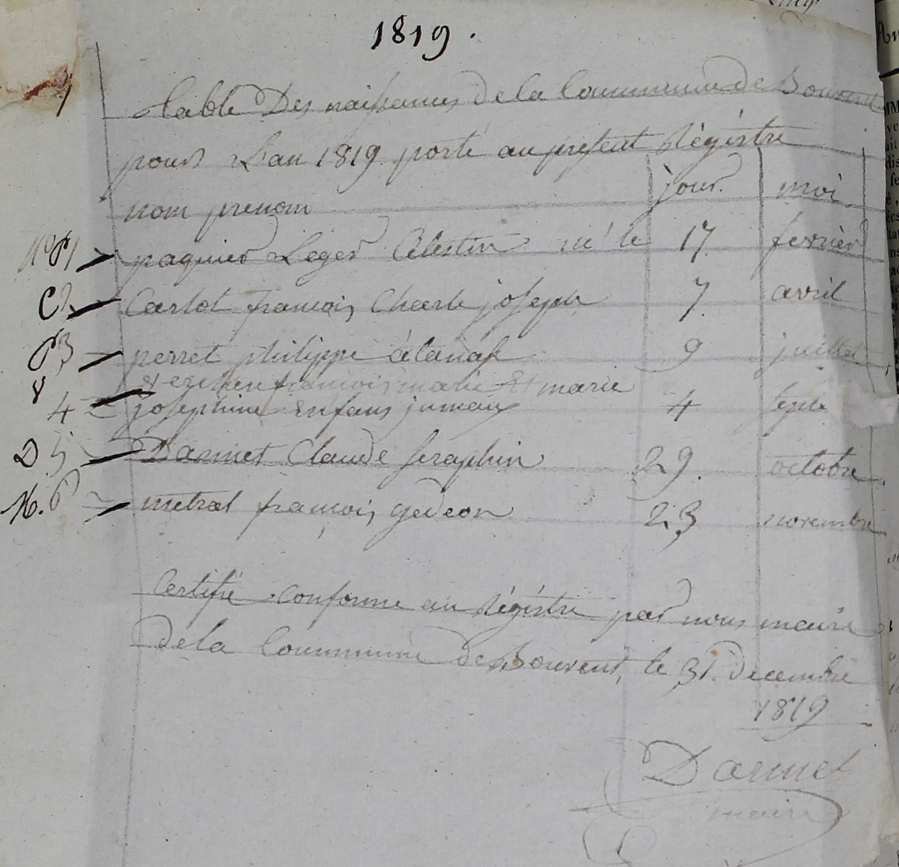 1819.
Table Des naissances de la Commune de Bouvent
pour Lan 1819 porté au present Régistre
nom prenom jour. moi
N. P1 paquier Leger Celestin né le 17 fevrier
C 2 Carlot francois, Charle joseph 7 avril
P 3 perret philippe 9 juillet
V francois marie et marie
4 josephine Enfans jumaux 4 septe
D 5 Dannet Claude seraphin 29. octobre
M. 6 metral francois, gedeon 23 novembre
Certifié conforme au Régistre par nous maire
de la Commune de Bouvent, le 31. decembre
1819
Dannet
maire